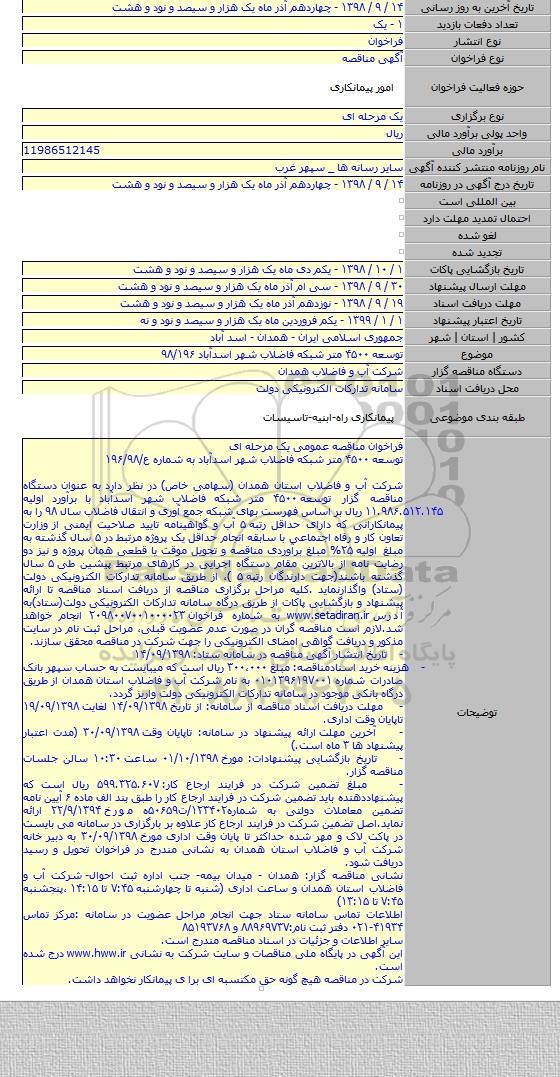 تاریخ آخرین به روز رسانی ۱۴ / ۹ / ۱۳۹۸ - چهاردهم آذر ماه یک هزار و سیصد و نود و هشت
تعداد دفعات بازدید ۱ - یک
نوع انتشار فراخوان
نوع فراخوان آگهی مناقصه
حوزه فعالیت فراخوان امور پیمانکاری
نوع برگزاری یک مرحله ای
واحد پولی برآورد مالی ریال
برآورد مالی 11986512145
نام روزنامه منتشر کننده آگهی سایر رسانه ها _ سپهر غرب
تاریخ درج آگهی در روزنامه ۱۴ / ۹ / ۱۳۹۸ - چهاردهم آذر ماه یک هزار و سیصد و نود و هشت
بین المللی است
احتمال تمدید مهلت دارد
لغو شده
تجدید شده
تاریخ بازگشایی پاکات ۱ / ۱۰ / ۱۳۹۸ - یکم دی ماه یک هزار و سیصد و نود و هشت
مهلت ارسال پیشنهاد ۳۰ / ۹ / ۱۳۹۸ - سی ام آذر ماه یک هزار و سیصد و نود و هشت
مهلت دریافت اسناد ۱۹ / ۹ / ۱۳۹۸ - نوزدهم آذر ماه یک هزار و سیصد و نود و هشت
تاریخ اعتبار پیشنهاد ۱ / ۱ / ۱۳۹۹ - یکم فروردین ماه یک هزار و سیصد و نود و نه
کشور | استان | شهر جمهوری اسلامی ایران - همدان - اسد آباد
موضوع توسعه ۴۵۰۰ متر شبکه فاضلاب شهر اسدآباد ۹۸/۱۹۶
دستگاه مناقصه گزار شرکت آب و فاضلاب همدان
محل دریافت اسناد سامانه تدارکات الکترونیکی دولت
طبقه بندی موضوعی پیمانکاری راه-ابنیه-تاسیسات
توضیحات
فراخوان مناقصه عمومی یک مرحله ای
توسعه ۴۵۰۰ متر شبکه فاضلاب شهر اسدآباد به شماره ع/۱۹۶/۹۸
شرکت آب و فاضلاب استان همدان (سهامی خاص) در نظر دارد به عنوان دستگاه
مناقصه گزار توسعه ۴۵۰۰ متر شبکه فاضلاب شهر اسدآباد با برآورد اولیه
۱۱.۹۸۶.۵۱۲.۱۴۵ ریال بر اساس فهرست بهای شبکه جمع آوری و انتقال فاضلاب سال ۹۸ را به
پیمانکارانی که دارای حداقل رتبه ۵ آب و گواهینامه تایید صلاحیت ایمنی از وزارت
تعاون کار و رفاه اجتماعی با سابقه انجام حداقل یک پروژه مرتبط در ۵ سال گذشته به
مبلغ اولیه ۲۵% مبلغ برآوردی مناقصه و تحویل موقت یا قطعی همان پروژه و نیز دو
رضایت نامه از بالاترین مقام دستگاه اجرایی در کارهای مرتبط پیشین طی ۵ سال
گذشته باشند(جهت دارندگان رتبه ۵ )، از طریق سامانه تدارکات الکترونیکی دولت
(ستاد) واگذارنماید .کلیه مراحل برگزاری مناقصه از دریافت اسناد مناقصه تا ارائه
پیشنهاد و بازگشایی پاکات از طریق درگاه سامانه تدارکات الکترونیکی دولت(ستاد)به
آدرس www.setadiran.ir به شماره فراخوان ۲۰۹۸۰۰۷۰۰۱۰۰۰۰۲۳ انجام خواهد
شد.لازم است مناقصه گران در صورت عدم عضویت قبلی، مراحل ثبت نام در سایت
مذکور و دریافت گواهی امضای الکترونیکی را جهت شرکت در مناقصه محقق سازند.
- تاریخ انتشار آگهی مناقصه در سامانه ستاد: ۱۴/۰۹/۱۳۹۸
- هزینه خرید اسنادمناقصه: مبلغ ۳۰۰.۰۰۰ ریال است که میبایست به حساب سپهر بانک
صادرات شماره ۰۱۰۱۳۹۶۱۹۷۰۰۱ به نام شرکت آب و فاضلاب استان همدان از طریق
درگاه بانکی موجود در سامانه تدارکات الکترونیکی دولت واریز گردد.
- مهلت دریافت اسناد مناقصه از سامانه: از تاریخ ۱۴/۰۹/۱۳۹۸ لغایت ۱۹/۰۹/۱۳۹۸
تاپایان وقت اداری.
- آخرین مهلت ارائه پیشنهاد در سامانه: تاپایان وقت ۳۰/۰۹/۱۳۹۸ (مدت اعتبار
پیشنهاد ها ۳ ماه است.)
- تاریخ بازگشایی پیشنهادات: مورخ ۰۱/۱۰/۱۳۹۸ ساعت ۱۰:۳۰ سالن جلسات
مناقصه گزار.
- مبلغ تضمین شرکت در فرایند ارجاع کار: ۵۹۹.۳۲۵.۶۰۷ ریال است که
پیشنهاددهنده باید تضمین شرکت در فرایند ارجاع کار را طبق بند الف ماده ۶ آیین نامه
تضمین معاملات دولتی به شماره۱۲۳۴۰۲/ت۵۰۶۵۹ه مورخ ۲۲/۹/۱۳۹۴ ارائه
نماید.اصل تضمین شرکت در فرایند ارجاع کار علاوه بر بارگزاری در سامانه می بایست
در پاکت لاک و مهر شده حداکثر تا پایان وقت اداری مورخ ۳۰/۰۹/۱۳۹۸ به دبیر خانه
شرکت آب و فاضلاب استان همدان به نشانی مندرج در فراخوان تحویل و رسید
دریافت شود.
نشانی مناقصه گزار: همدان - میدان بیمه- جنب اداره ثبت احوال- شرکت آب و
فاضلاب استان همدان و ساعت اداری (شنبه تا چهارشنبه ۷:۴۵ تا ۱۴:۱۵ ،پنجشنبه
۷:۴۵ تا ۱۳:۱۵)
اطلاعات تماس سامانه ستاد جهت انجام مراحل عضویت در سامانه :مرکز تماس
۰۲۱-۴۱۹۳۴ دفتر ثبت نام:۸۸۹۶۹۷۳۷ و ۸۵۱۹۳۷۶۸
سایر اطلاعات و جزئیات در اسناد مناقصه مندرج است.
این آگهی در پایگاه ملی مناقصات و سایت شرکت به نشانی www.hww.ir درج شده
است.
شرکت در مناقصه هیچ گونه حق مکتسبه ای برا ی پیمانکار نخواهد داشت.